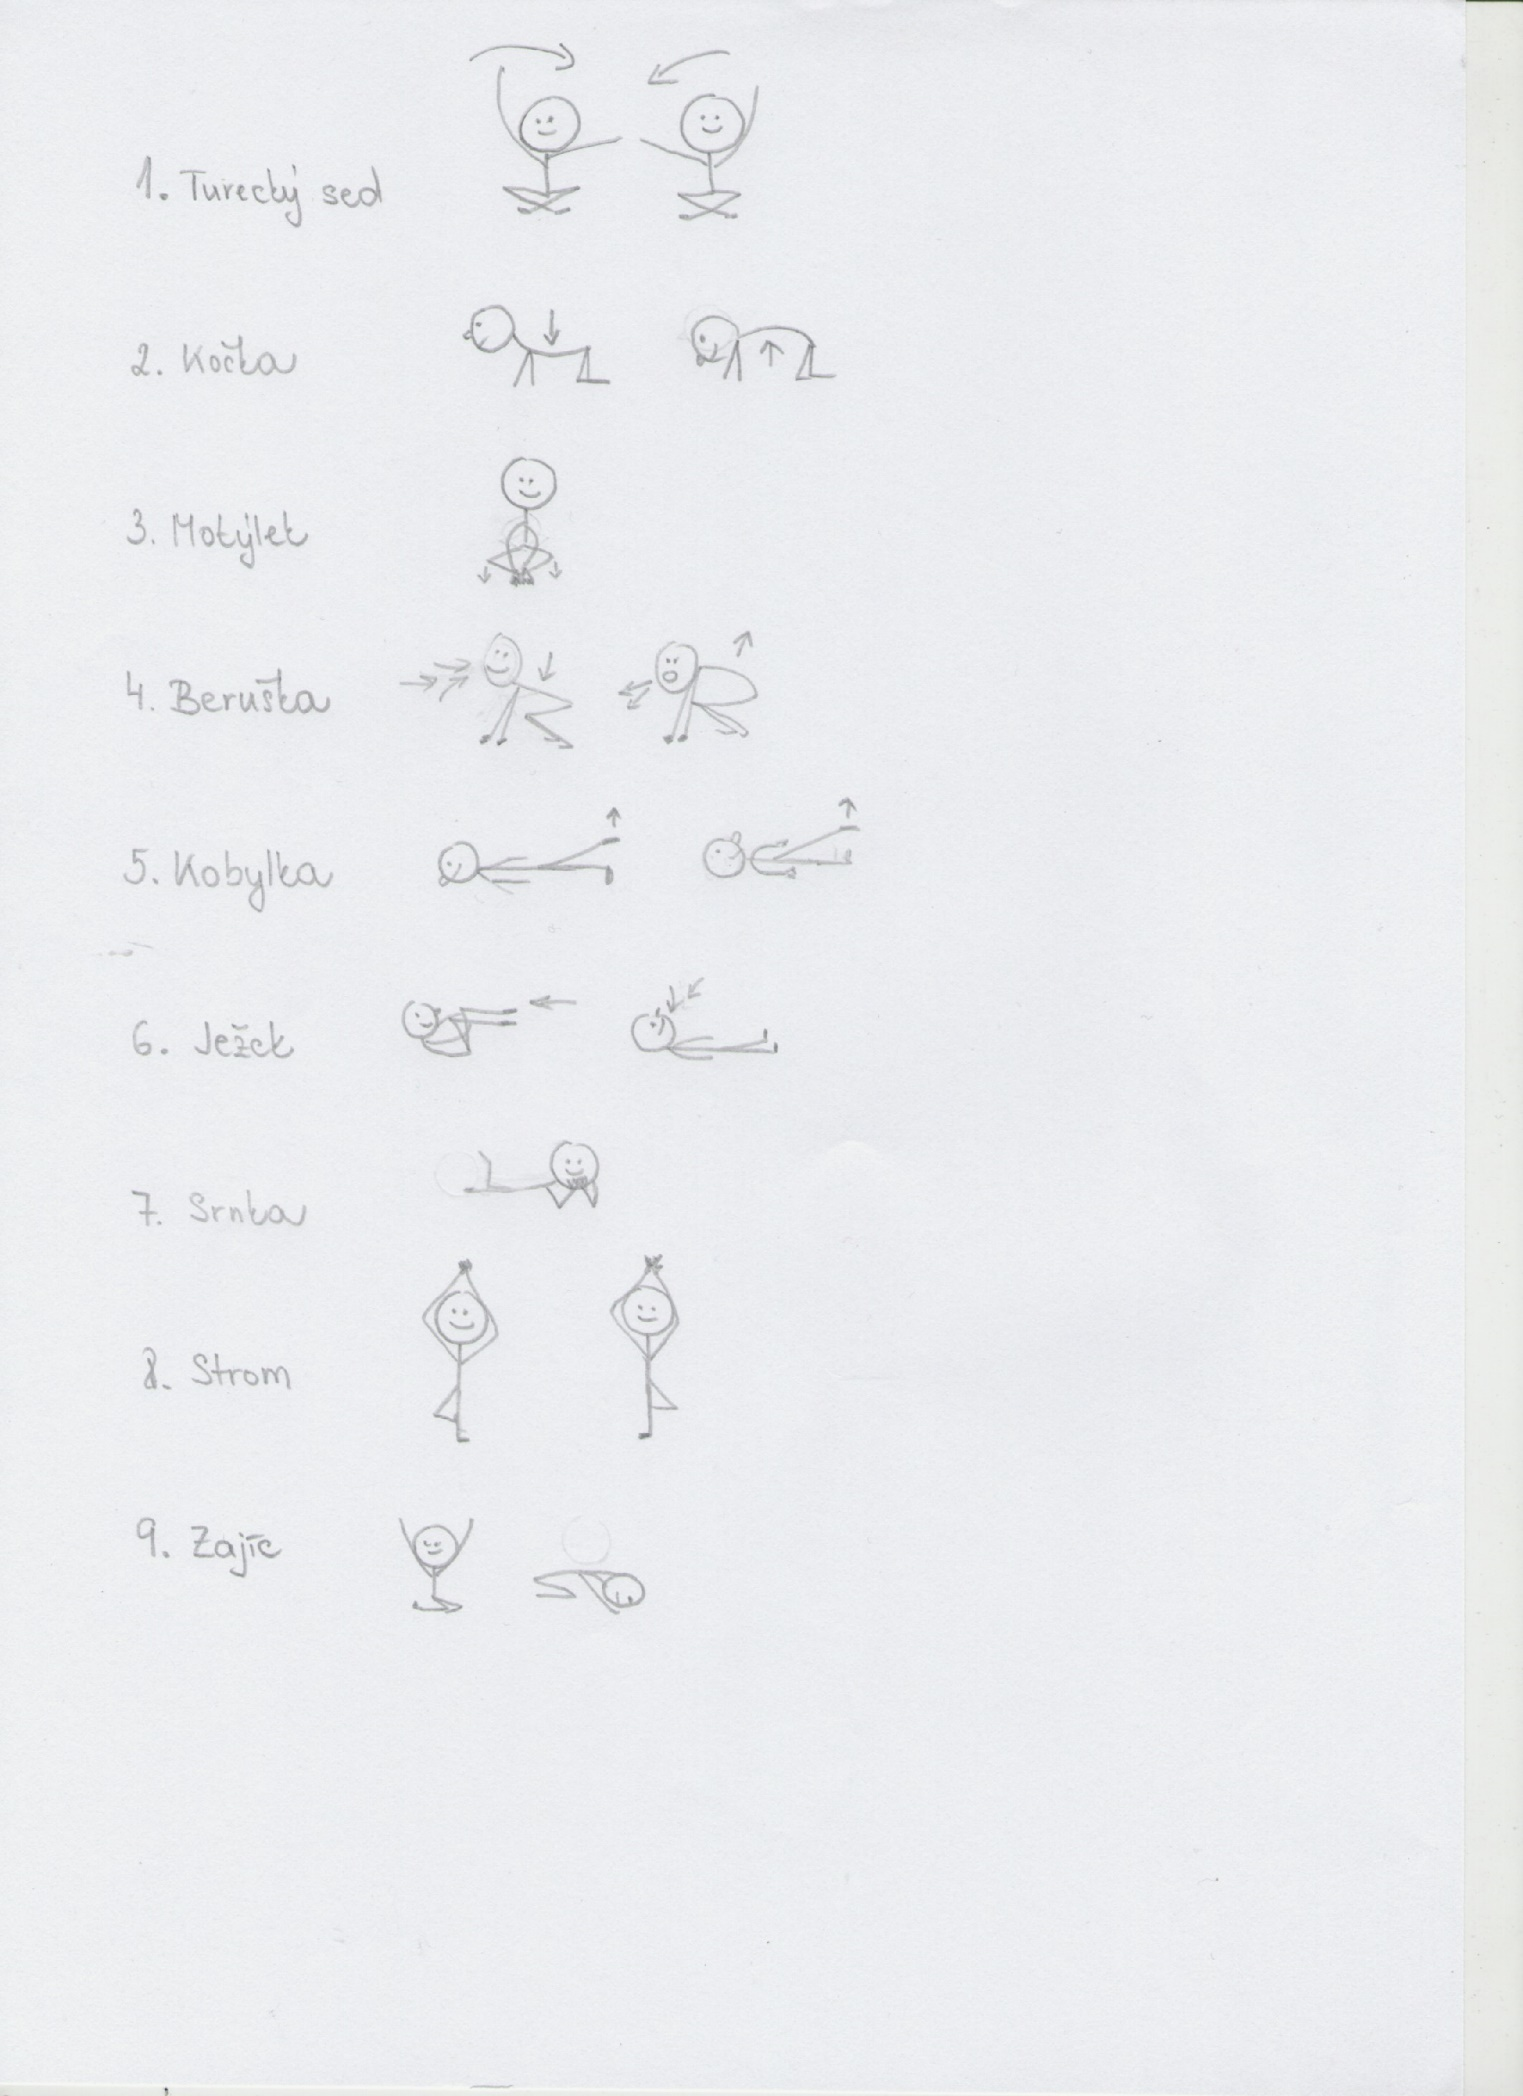 1. Turecký sed
2. Kočka
3. Motýlek
4. Beruška
5. Kobylka
6. Ježek
7. Srnka
8. Strom
9. Zajíc